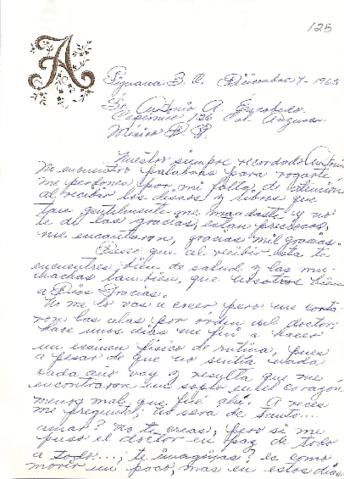 125
A
Tijuana B. C. Diciembre 7 - 1965
Sr. Antonio A.
126
México D. F.
Nuestro siempre recordado Antonio
No encuentro palabras para rogarte,
me perdones por mi falta de atención
al recibir los discos y libros que
tan gentilmente me mandaste y no
te di las gracias, están preciosos,
me encantaron, gracias mil gracias.
Deseo que al recibir ésta te
encuentres bien de salud y las mu-
chachas también, que nosotros bien
a Dios Gracias.
No me lo vas a creer pero me corta-
ron las alas por orden del doctor;
hace unos días me fuí a hacer
un exámen físico de rutina, pues
a pesar de que no sentía nada
cada año voy y resulta que me
encontraron un soplo en el corazón
menos mal que fué ahí. A veces
me pregunto; no será de tanto....
amar? no te creas, pero si me
puso el doctor en paz de todo
a todo...., te imaginas? es como
morir un poco, mas en estos días